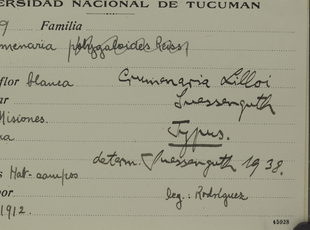 VERSIDAD NACIONAL DE TUCUMAN
9 Familia
menaria polygaloides Reiss
flor blanca Crumenaria Lilloi
ar Suessenguth
Misiones.
na Typus.
determ. Suessenguth 1938.
s Mat-campos
por leg.: Rodríguez
1912.
45928